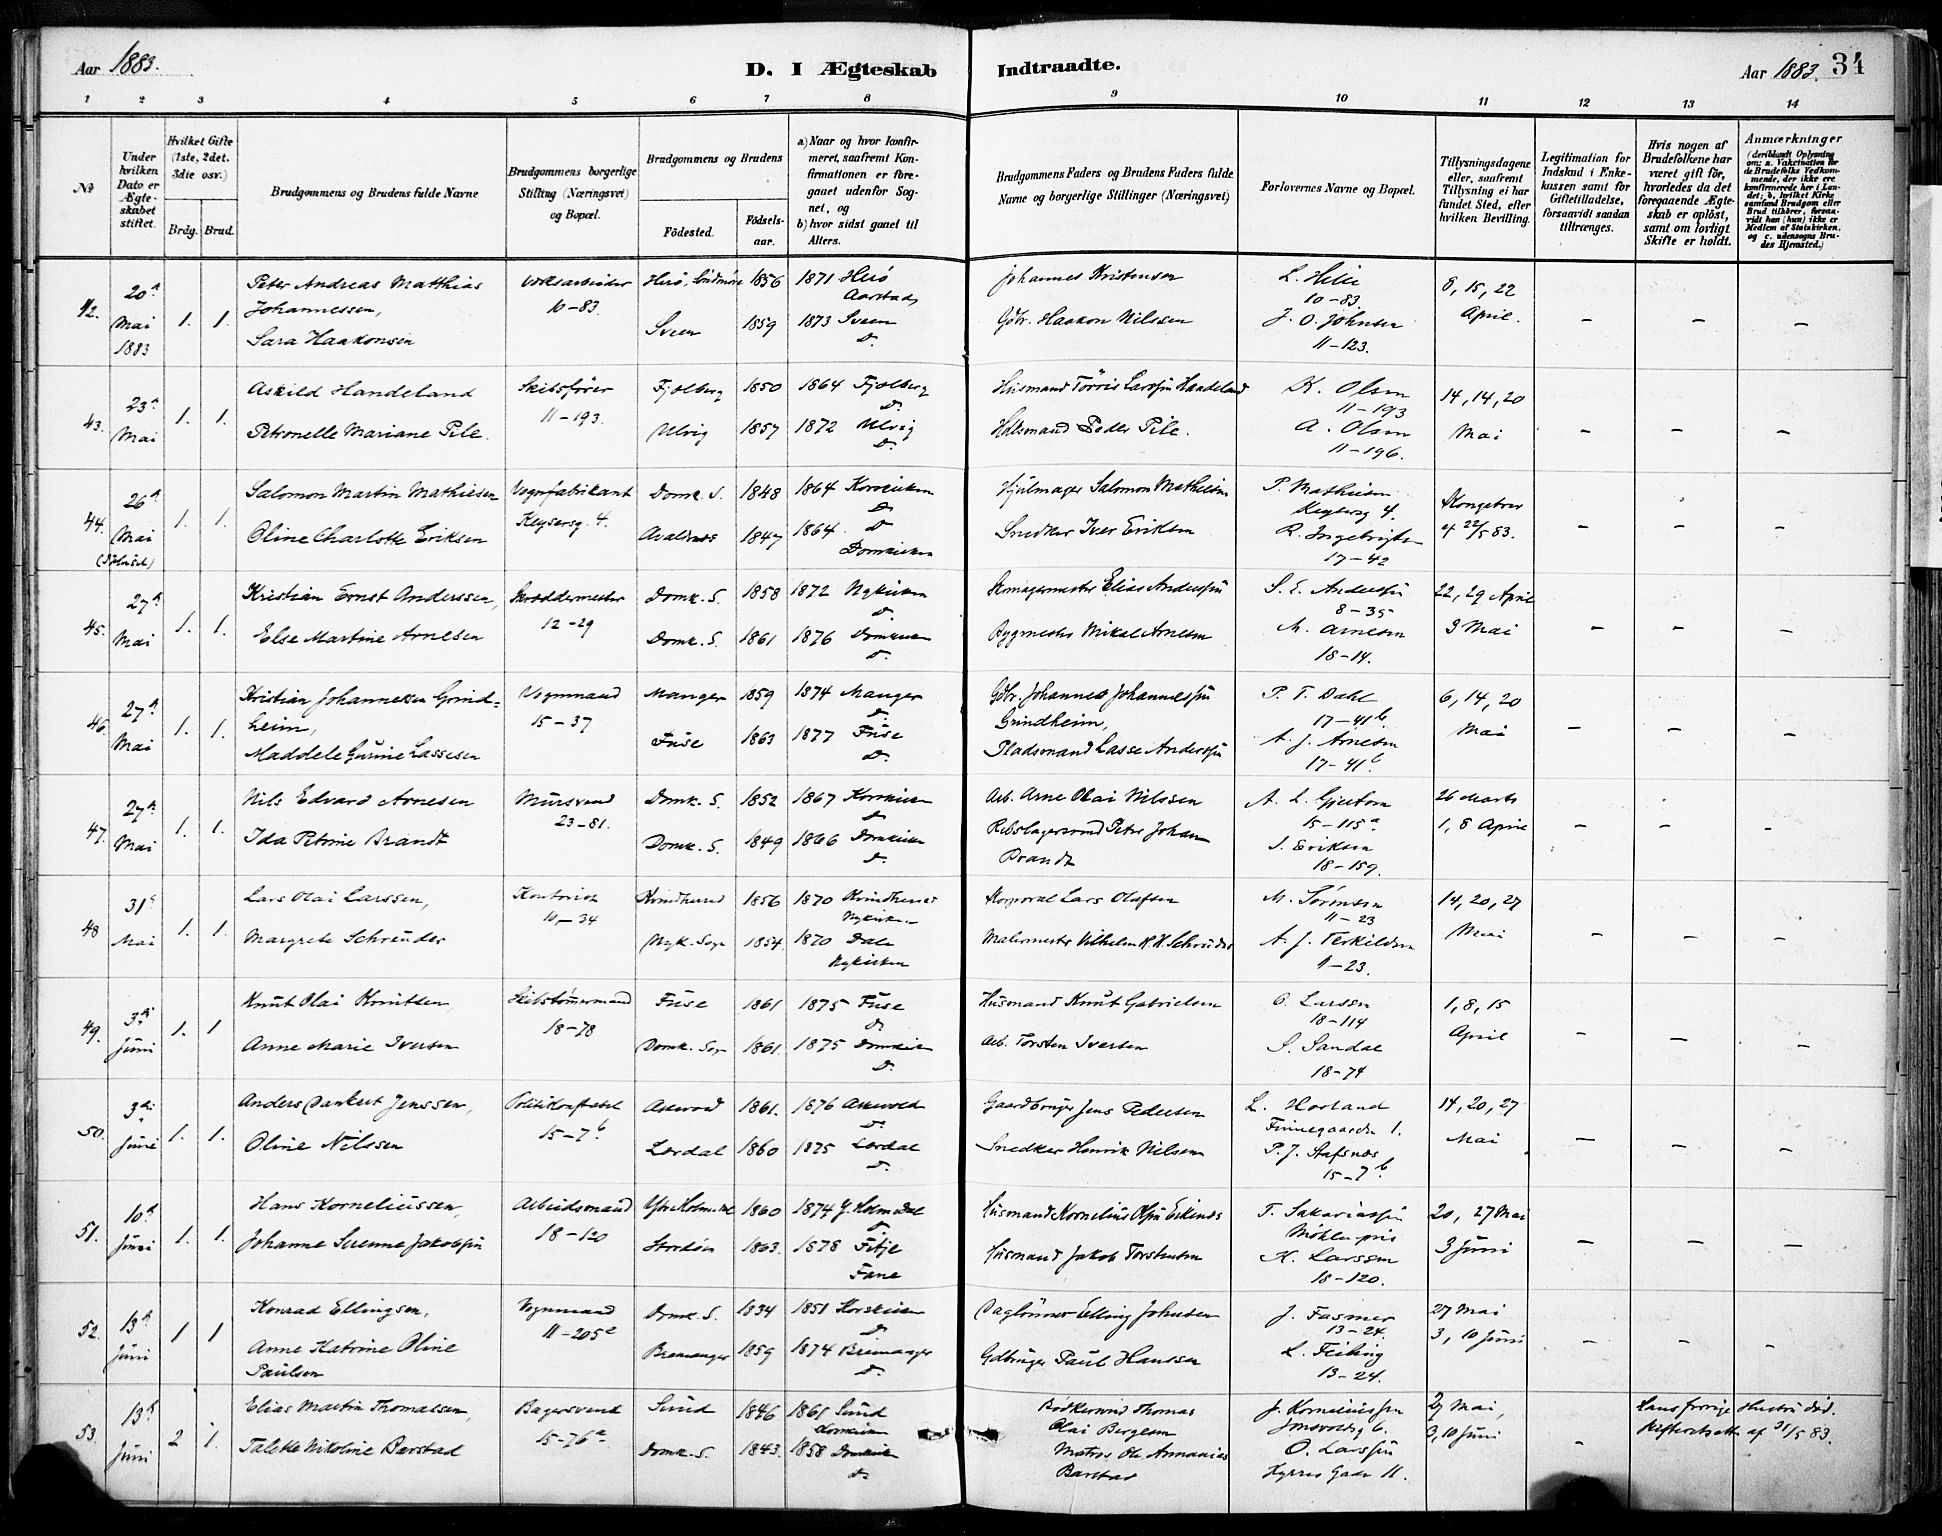 Aar 1883.
D. I Ægteskab Indtraadte.
Aar 1883. 34
1 2 3 4 5 6 7 8 9 10 11 12 13 14
№
Under hvilken Dato er Ægteskabet stiftet.
Hvilket Gifte (1ste, 2det, 3die osv.)
Brdg. Brud.
Brudgommens og Brudens fulde Navne
Brudgommens borgerlige Stilling (Næringsvei) og Bopæl.
Brudgommens og Brudens
Fødested. Fødsels-aar.
a) Naar og hvor konfirmeret, saafremt Konfirmationen er foregaaet udenfor Sognet, og
b) hvor sidst gaaet til Alters.
Brudgommens Faders og Brudens Faders fulde Navne og borgerlige Stillinger (Næringsvei)
Forlovernes Navne og Bopæl.
Tillysningsdagene eller, saafremt Tillysning ei har fundet Sted, efter hvilken Bevilling.
Legitimation for Indskud i Enkekassen samt for Giftetilladelse, forsaavidt saadan tiltrænges.
Hvis nogen af Brudefolkene har været gift før, hvorledes da det foregaaende Ægteskab er opløst, samt om lovligt Skifte er holdt.
Anmærkninger
(deriblandt Oplysning om: a. Vakcination for de Brudefolks Vedkommende, der ikke ere konfirmerede her i Landet; b. hvilket Kirkesamfund Brudgom eller Brud tilhører, forsaavidt han (hun) ikke er Medlem af Statskirken, og c. udensogns Brudes Hjemsted.)
42. 20de Mai 1883 1. 1. Peter Andreas Matthias Johannessen, Værksarbeider 10-83. Herö, Söndmöre 1856 1871 Herö Aarstad, Johannes Kristensen 10-83. 8, 15, 22 April. – – –
Sara Haakonsen Sveen 1859 1873 Sveen D. Gdbr. Haakon Nilssen J. O. Johnsen 11-123.
43. 23de Mai 1. 1. Askild Handeland Skibsfører 11-193. Fjelberg 1850 1864 Fjelberg D. Husmand Tørris Larssøn Handeland K. Olsen 11-193 14, 14, 20 Mai – – –
Petronelle Mariane Pile. Ulvig 1857 1872 Ulvig D. Peder Pile. A. Olsen 11-196.
44. 26de Mai 1. 1. Salomon Martin Mathiesen Vognfabrikant Keysersg. 4. Domk. S. 1848 1864 Korskirken D. Hjulmager Salomon Mathiesen P. Mathiesen 4. Kongebrev af 22/5 83. – – –
Oline Charlotte Eriksen Avaldsnes 1847 1864 D. Domkirken Snedker Iver Eriksen R. Ingebrigtsen 17-42
45. 27de Mai 1. 1. Kristian Ernst Anderssen, Skræddermester 12-29 Domk. S. 1858 1872 Nykirken D. Skomagermester Elias Anderssøn S. E. Anderssøn 8-35 22, 29 April 3 Mai – – –
Else Martine Arnesen Domk. S. 1861 1876 Domkirken D. Bygmester Mikal Arnesen M. Arnesen 18-14.
46. 27de Mai 1. 1. Kristian Johannesen Grindheim, Vognmand 15-37 Manger 1859 1874 Manger D. Gdbr. Johannes Johannessøn Grindheim, P. T. Dahl 17-41b. 6, 14, 20 Mai – – –
Maddele Gurine Lassesen Fuse 1863 1877 Fuse D. Pladsmand Lasse Anderssøn A. J. Arnesen 17-41b.
47. 27de Mai 1. 1. Nils Edvard Arnesen Mursvend 23-81. Domk. S. 1852 1867 Korskirken D. Arb. Arne Olai Nilssen 15-115a. 26 Marts 1, 8 April – – –
Ida Petrine Brandt Domk. S. 1849 1866 Domkirken D. Rebslagersvend Peter Johan Brandt J. Eriksen 18-159.
48 31te Mai 1. 1. Lars Olai Larssen, Kontorist 10-34 Kvindherred 1856 1870 Kvindherred Nykirken Korporal Lars Olafsen M. Sørensen 11-23 14, 20, 27 Mai – – –
Margrete Schreuder Nyk. Sogn 1854. 1870 Dale Nykirken Malermester Vilhelm H. Schreuder A. J. Terkildsen 1-23.
49. 3die Juni 1. 1 Knut Olai Knutsen, Skibstømmermand 18-78 Fuse 1861 1875 Fuse D. Husmand Knut Gabrielsen O. Larsen 18-114 1, 8, 15 April – – –
Anne Marie Iversen Domk. Sogn 1861. 1875 Domkirken D. Arb. Torsten Iversen S. Sandal 18-74
50. 3die Juni 1. 1. Anders Dankert Jenssen, Politikonstabel 15-7b. Askevold 1861. 1876 Askevold D. Gaardbruger Jens Pedersen L. Hovland Finnegaarden 1. 14, 20, 27 Mai – – –
Oline Nilssen Lærdal 1860 1875 Lærdal D. Snedker Henrik Nilsen P. J. 15-7b
51. 10de Juni 1. 1. Hans Korneliussen, Arbeidsmand 18-120 Ytre Holmedal 1860 1874 Y. Holmedal D. Husmand Kornelius T. Sakariassøn Møhlenpris 20, 27 Mai 3 Juni – – –
Johanne Serenne Jakobsøn Stordøn 1863. 1878 Fitje Fane Husmand Jakob Torstensen K. Larssen 18-120.
52. 13de Juni 1 1 Konrad Ellingsen, Vognmand 11-205c Domk. S. 1834 1851 Korskirken D. Dagløner Elling Johnsen J. Fasmer 13-24. 27 Mai 3, 10 Juni – – –
Anne Katrine Oline Paulsen Bremanger 1859 1874 Bremanger D. Gdbruger Paul Hanssen L. Feiling 13-24.
53. 13de Juni 2 1. Elias Martin Thomassen, Bagersvend 15-76a Sund 1846 1861 Sund Korskirken Bødkersvend Thomas Olai Bergesen J. Korneliussøn 6. 27 Mai, 3, 10 Juni – Hans forrige Hustru død. Skifteattest af 31/5 83.
Talette Nikoline Barstad Domk. S. 1843. 1858 Domkirken D. Matros Ole Ammanias Barstad O. Larssøn Gaar 11.